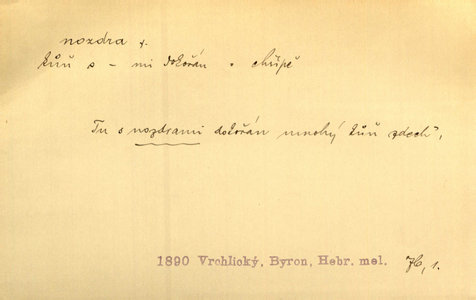 nozdra f.
kůň s – mi dokořán • chřípě
Tu s nozdrami dokořán mnohý kůň zdech',
1890 Vrchlický, Byron, Hebr. mel. 76, 1.